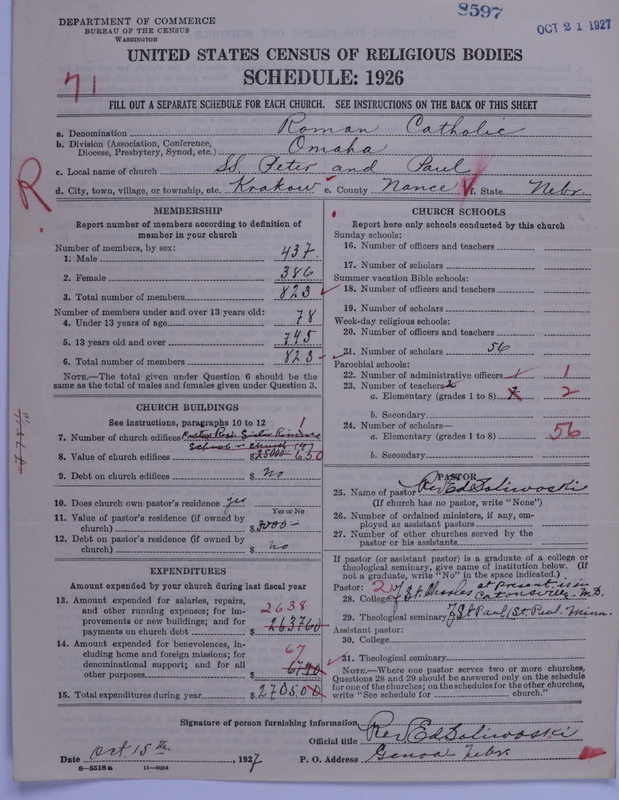 DEPARTMENT OF COMMERCE
BUREAU OF THE CENSUS
WASHINGTON
8597
OCT 21 1927
UNITED STATES CENSUS OF RELIGIOUS BODIES
SCHEDULE: 1926
71
FILL OUT A SEPARATE SCHEDULE FOR EACH CHURCH. SEE INSTRUCTIONS ON THE BACK OF THIS SHEET
R.
a. Denomination Roman Catholic
b. Division (Association, Conference, Diocese, Presbytery, Synod, etc.) Omaha
c. Local name of church SS. Peter and Paul
d. City, town, village, or township, etc. Krakow e. County Nance f. State Nebr.
MEMBERSHIP
Report number of members according to definition of
member in your church
Number of members, by sex:
1. Male 437.
2. Female 386
3. Total number of members 823
Number of members under and over 13 years old:
4. Under 13 years of age 78
5. 13 years old and over 745
6. Total number of members 823
NOTE.—The total given under Question 6 should be
the same as the total of males and females given under Question 3.
CHURCH BUILDINGS
See instructions, paragraphs 10 to 12
7. Number of church edifices 1
School - Church
8. Value of church edifices $25000
9. Debt on church edifices $ no
10. Does church own pastor's residence yes
Yes or No
11. Value of pastor's residence (if owned by
church) $3000-
12. Debt on pastor's residence (if owned by
church) $ no
EXPENDITURES
Amount expended by your church during last fiscal year
13. Amount expended for salaries, repairs,
and other running expenses; for im-
provements or new buildings; and for
payments on church debt $ 263760
2638
14. Amount expended for benevolences, in-
cluding home and foreign missions; for
denominational support; and for all
other purposes $ 6740
67
15. Total expenditures during year $270500
CHURCH SCHOOLS
Report here only schools conducted by this church
Sunday schools:
16. Number of officers and teachers
17. Number of scholars
Summer vacation Bible schools:
18. Number of officers and teachers
19. Number of scholars
Week-day religious schools:
20. Number of officers and teachers
21. Number of scholars 56
Parochial schools:
22. Number of administrative officers 1 1
23. Number of teachers—
a. Elementary (grades 1 to 8) 2
b. Secondary
24. Number of scholars—
a. Elementary (grades 1 to 8) 56
b. Secondary
PASTOR
25. Name of pastor Rev Ed Soliwoski
(If church has no pastor, write "None")
26. Number of ordained ministers, if any, em-
ployed as assistant pastors
27. Number of other churches served by the
pastor or his assistants
If pastor (or assistant pastor) is a graduate of a college or
theological seminary, give name of institution below. (If
not a graduate, write "No" in the space indicated.)
Pastor: 2
28. College St. Charles at present is in Catonsville, M.D.
29. Theological seminary St Paul, St. Paul. Minn.
Assistant pastor:
30. College
31. Theological seminary
NOTE.—Where one pastor serves two or more churches,
Questions 28 and 29 should be answered only on the schedule
for one of the churches; on the schedules for the other churches,
write "See schedule for church."
Signature of person furnishing information Rev Ed Soliwoski
Official title
Date Oct 15th, 1927 P. O. Address Genoa Nebr.
8—5518a 11—9024